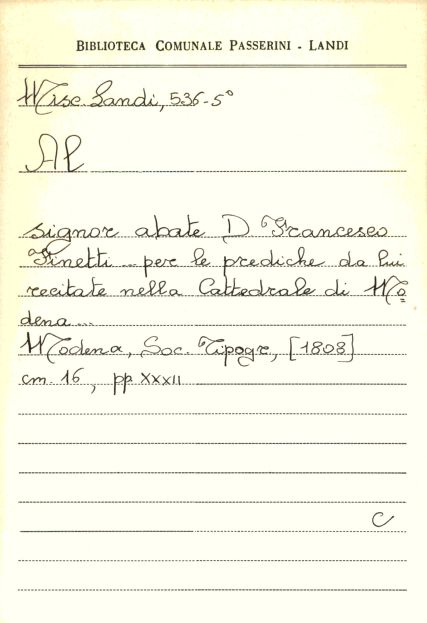 BIBLIOTECA COMUNALE PASSERINI - LANDI
Misc. Landi, 536-5°
Al
signor abate D. Francesco
Finetti ... per le prediche da lui
recitate nella Cattedrale di Mo=
dena ...
Modena, Soc. Tipogr., [1808]
cm. 16, pp. XXXII
C